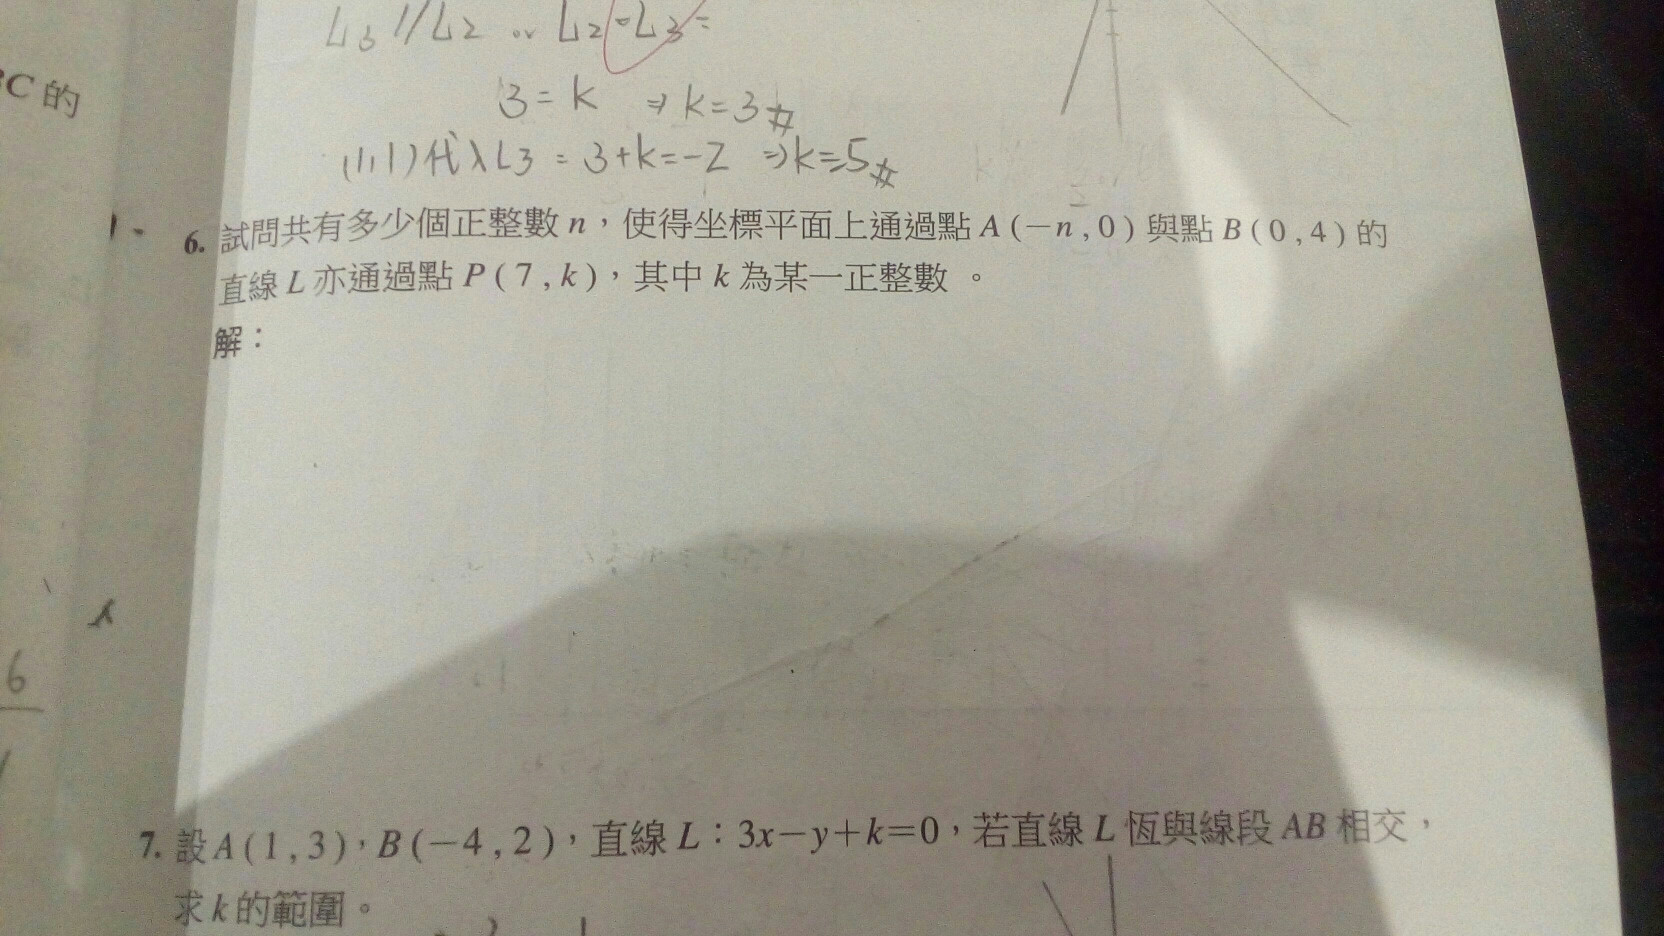 L3 // L2 or L2 = L3 =
BC 的
3 = k ⇒ k = 3 #
(1,1) 代入 L3 = 3+k=-2 ⇒ k=5 #
6. 試問共有多少個正整數 n，使得坐標平面上通過點 A(−n,0) 與點 B(0,4) 的
直線 L 亦通過點 P(7,k)，其中 k 為某一正整數。
解：
6
7. 設 A(1,3)，B(−4,2)，直線 L：3x−y+k=0，若直線 L 恆與線段 AB 相交，
求 k 的範圍。